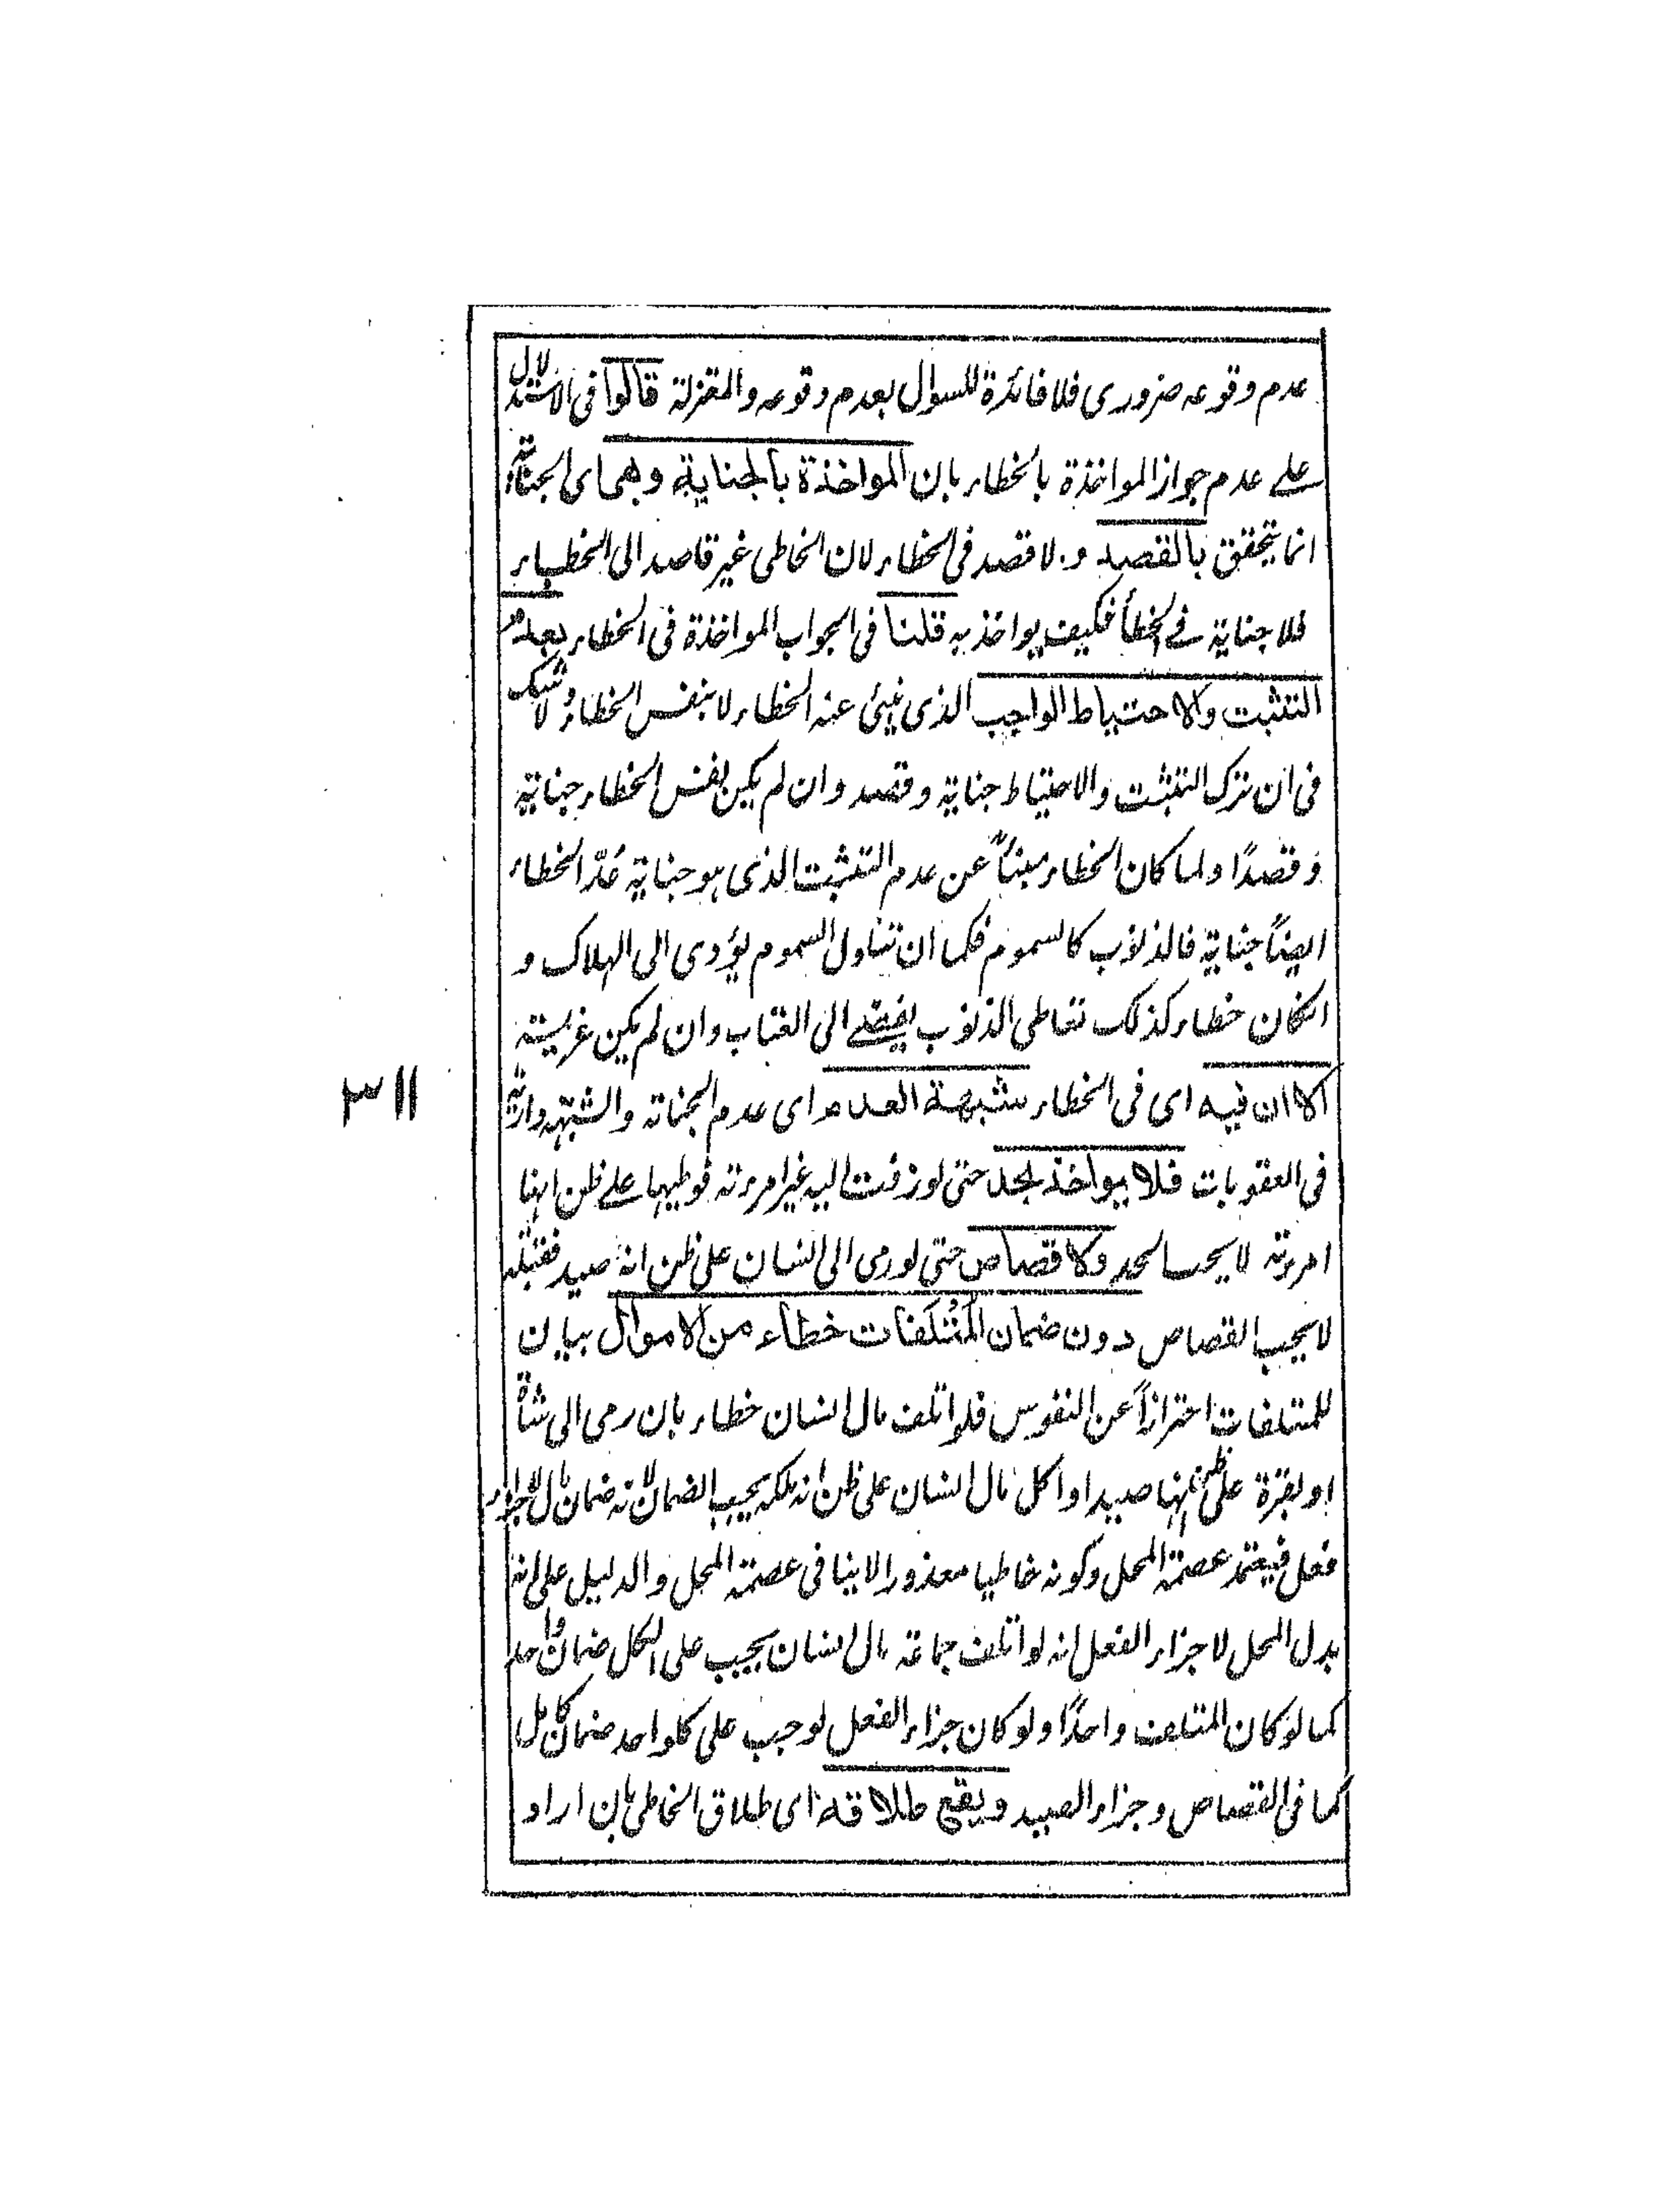 عدم وقوعه ضروری فلا فائدة للسوال بعدم وقوعه والمعتزلة قالوا فی الاستدلال
علے عدم جواز المواخذة بالخطاء بان المواخذة بالجنایة وهی ای الجنایة
انما یتحقق بالقصد و لا قصد فی الخطاء لان الخاطی غیر قاصد الی الخطاء
فلا جنایة فے الخطأ فکیف یواخذ به قلنا فی الجواب المواخذة فی الخطاء بعدم
التثبت والاحتیاط الواجب الذی ینبئ عنه الخطاء لا بنفس الخطاء ولا شک
فی ان ترک التثبت والاحتیاط جنایة وقصد وان لم یکن نفس الخطاء جنایة
وقصدًا ولما کان الخطاء مبنئًا عن عدم التثبت الذی هو جنایة عُدّ الخطاء
ایضًا جنایة فالذنوب کالسموم فکما ان تناول السموم یؤدی الی الهلاک و
انکان خطاء کذلک تعاطی الذنوب یفضے الی العقاب وان لم یکن عزیمته
الا ان فیه ای فی الخطاء شبهة العدم ای عدم الجنایة والشبهة دارئة
فی العقوبات فلا یواخذ بحد حتی لو زفت الیه غیر امرءته فوطیها علے ظن انها
امرءته لا یجب الحد ولا قصاص حتی لو رمی الی انسان علی ظن انه صید فقتله
لا یجب القصاص دون ضمان المُتْلَفات خطاء من الاموال بیان
للمتلفات احترازًا عن النفوس فلو اتلف مال انسان خطاء بان رمی الی شاة
او بقرة علی ظن انها صید او اکل مال انسان علی ظن انه ملکه یجب الضمان لانه ضمان مال لا جزاء
فعل فیعتمد عصمة المحل وکونه خاطیا معذورا لا ینافی عصمة المحل والدلیل علی انه
بدل المحل لا جزاء الفعل انه لو اتلف جماعة مال انسان یجب علی الکل ضمان واحد
کما لو کان المتلف واحدًا ولو کان جزاء الفعل لوجب علی کلواحد ضمان کامل
کما فی القصاص وجزاء الصید ویقع طلاقه ای طلاق الخاطی بان اراد
٣١١